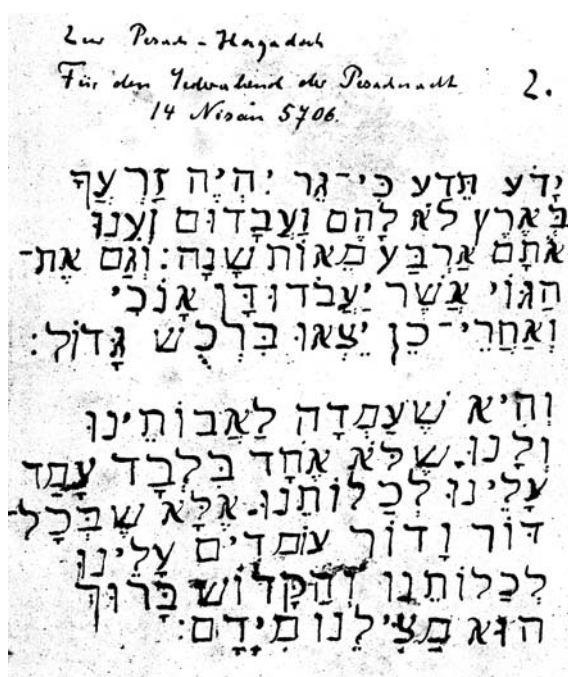 Zur Pesach-Hagadah
Für den Sederabend der Pesachnacht 2.
14 Nisan 5706.
יָדֹעַ תֵּדַע כִּי־גֵר יִהְיֶה זַרְעֲךָ
בְּאֶרֶץ לֹא לָהֶם וַעֲבָדוּם וְעִנּוּ
אֹתָם אַרְבַּע מֵאוֹת שָׁנָה: וְגַם אֶת־
הַגּוֹי אֲשֶׁר יַעֲבֹדוּ דָּן אָנֹכִי
וְאַחֲרֵי־כֵן יֵצְאוּ בִּרְכֻשׁ גָּדוֹל:
וְהִיא שֶׁעָמְדָה לַאֲבוֹתֵינוּ
וְלָנוּ. שֶׁלֹּא אֶחָד בִּלְבָד עָמַד
עָלֵינוּ לְכַלּוֹתֵנוּ. אֶלָּא שֶׁבְּכָל
דּוֹר וָדוֹר עוֹמְדִים עָלֵינוּ
לְכַלּוֹתֵנוּ וְהַקָּדוֹשׁ בָּרוּךְ
הוּא מַצִּילֵנוּ מִיָּדָם: